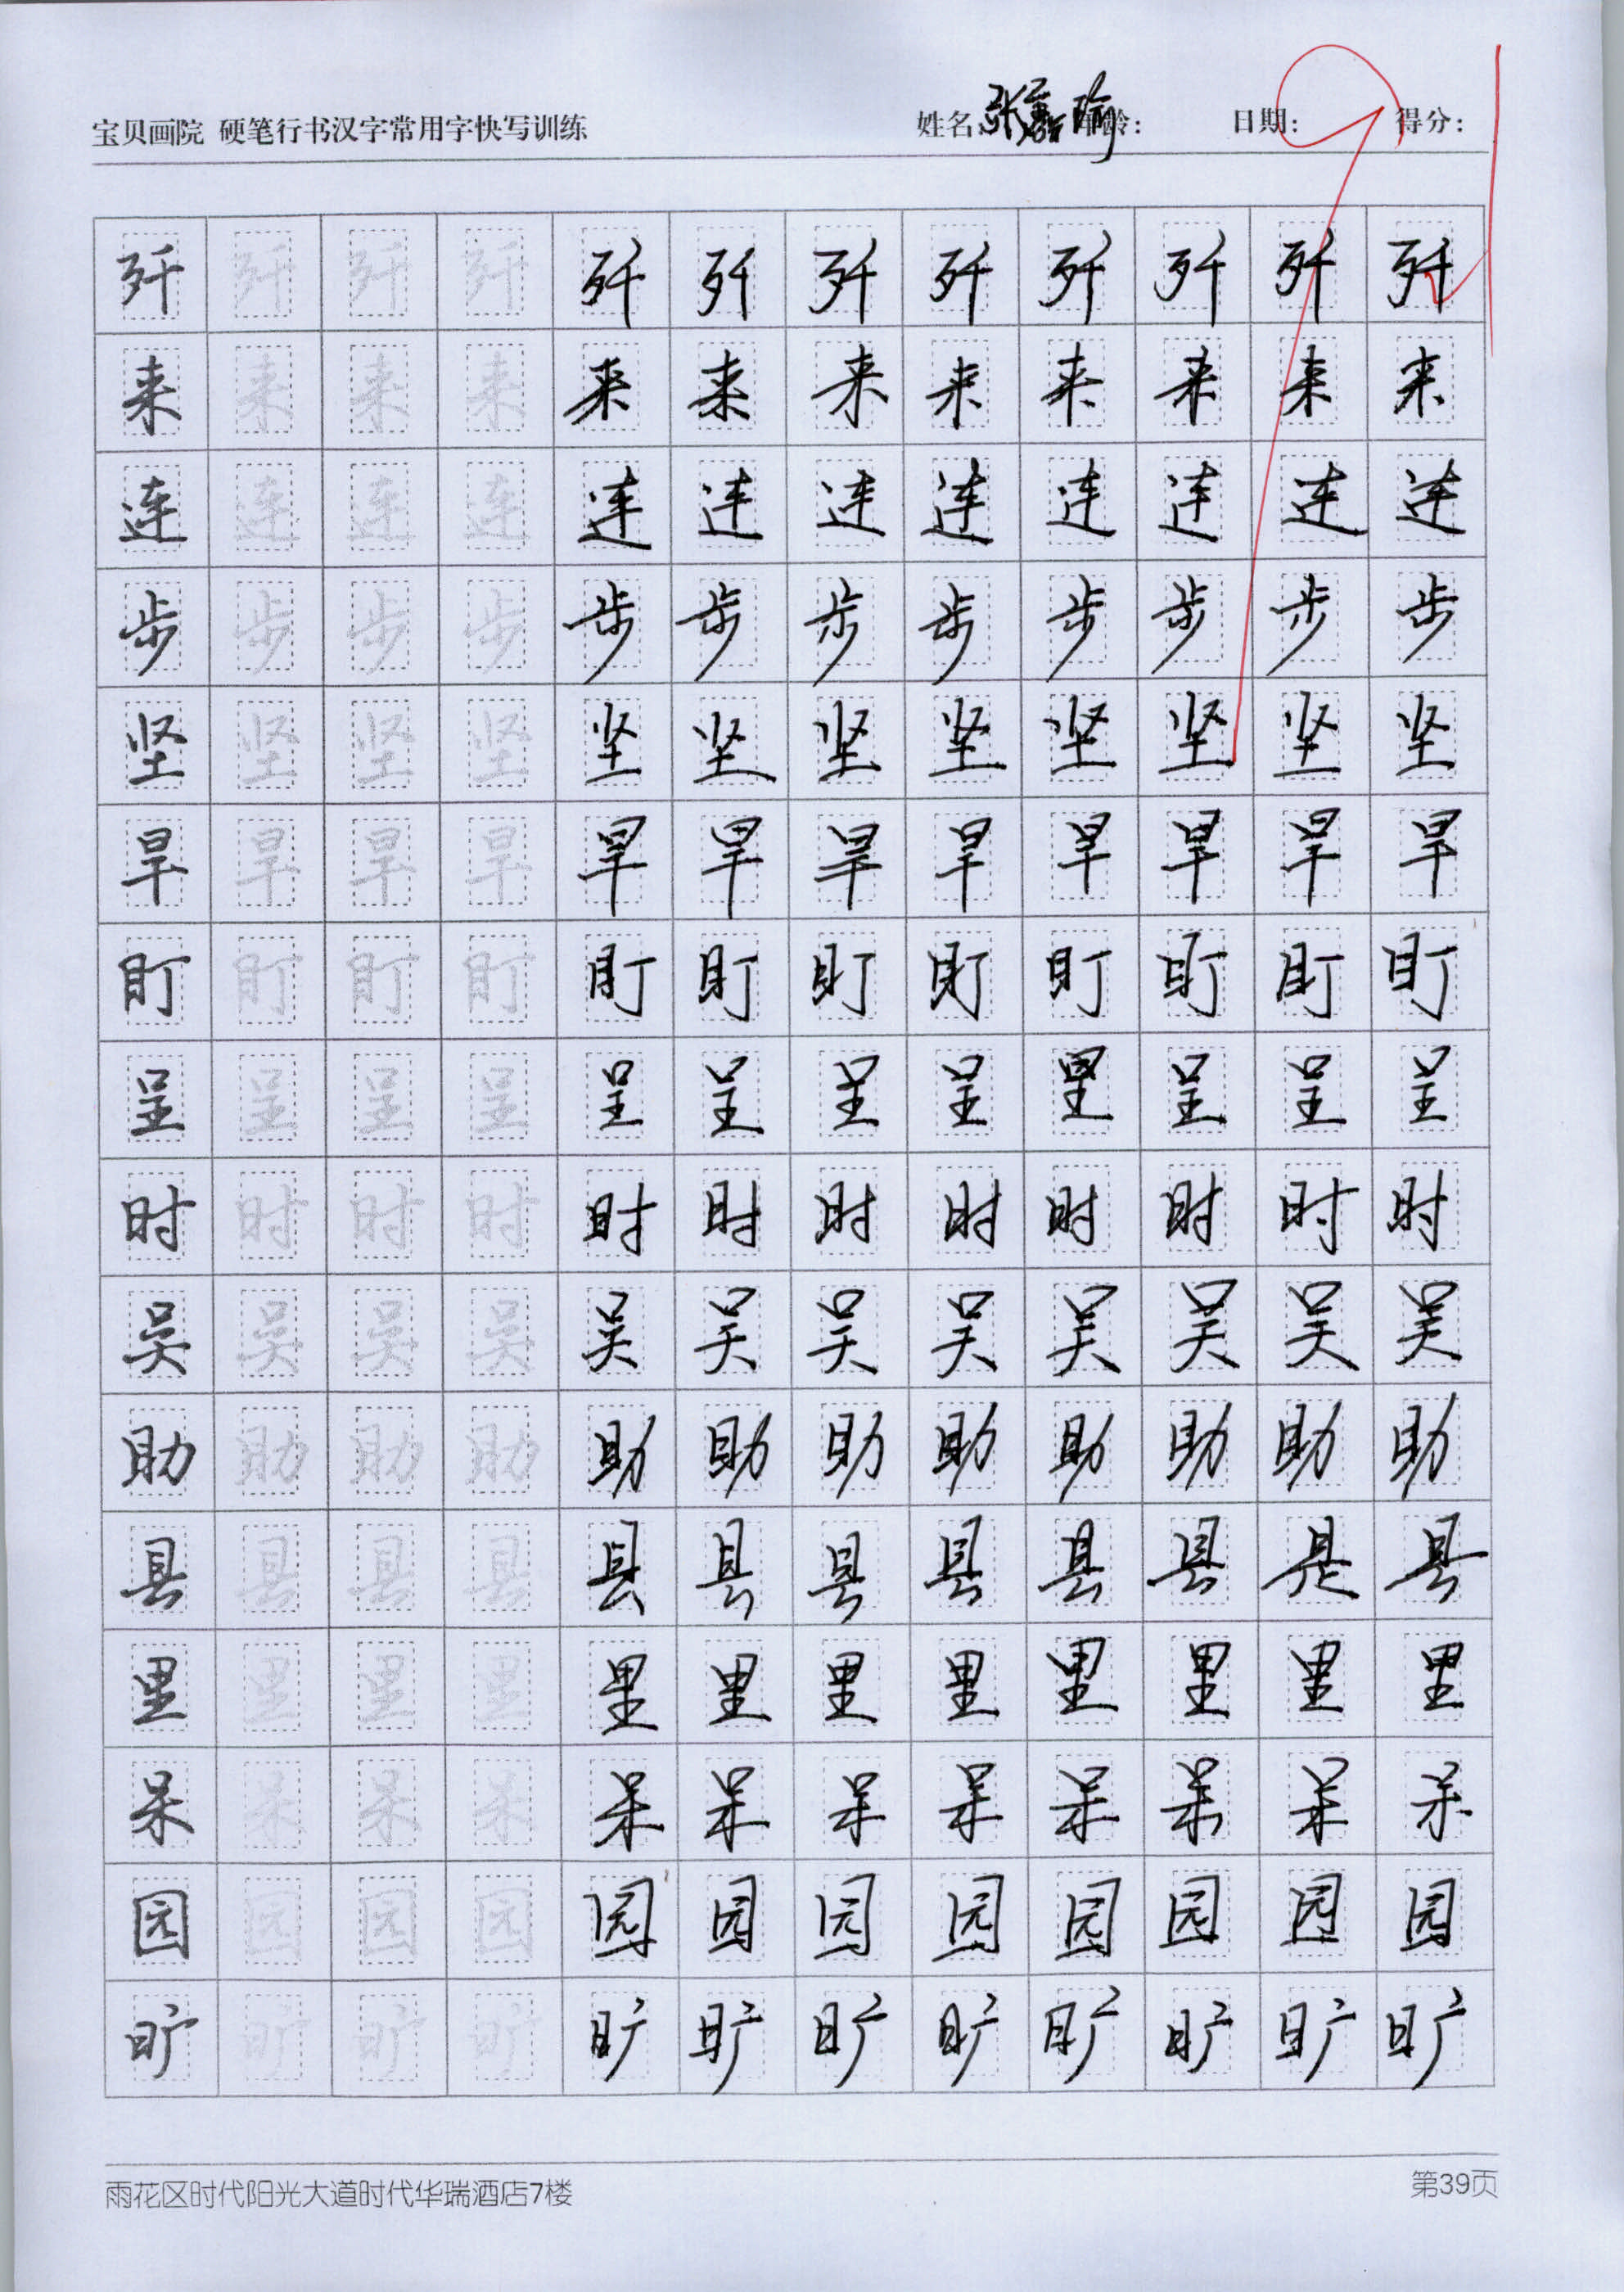 宝贝画院 硬笔行书汉字常用字快写训练 姓名: 张嘉瑜 年龄: 日期: 得分: 91
歼 歼 歼 歼 歼 歼 歼 歼 歼 歼 歼 歼
来 来 来 来 来 来 来 来 来 来 来 来
连 连 连 连 连 连 连 连 连 连 连 连
步 步 步 步 步 步 步 步 步 步 步 步
坚 坚 坚 坚 坚 坚 坚 坚 坚 坚 坚 坚
旱 旱 旱 旱 旱 旱 旱 旱 旱 旱 旱 旱
盯 盯 盯 盯 盯 盯 盯 盯 盯 盯 盯 盯
呈 呈 呈 呈 呈 呈 呈 呈 呈 呈 呈 呈
时 时 时 时 时 时 时 时 时 时 时 时
吴 吴 吴 吴 吴 吴 吴 吴 吴 吴 吴 吴
助 助 助 助 助 助 助 助 助 助 助 助
县 县 县 县 县 县 县 县 县 县 县 县
里 里 里 里 里 里 里 里 里 里 里 里
呆 呆 呆 呆 呆 呆 呆 呆 呆 呆 呆 呆
园 园 园 园 园 园 园 园 园 园 园 园
旷 旷 旷 旷 旷 旷 旷 旷 旷 旷 旷 旷
雨花区时代阳光大道时代华瑞酒店7楼 第39页